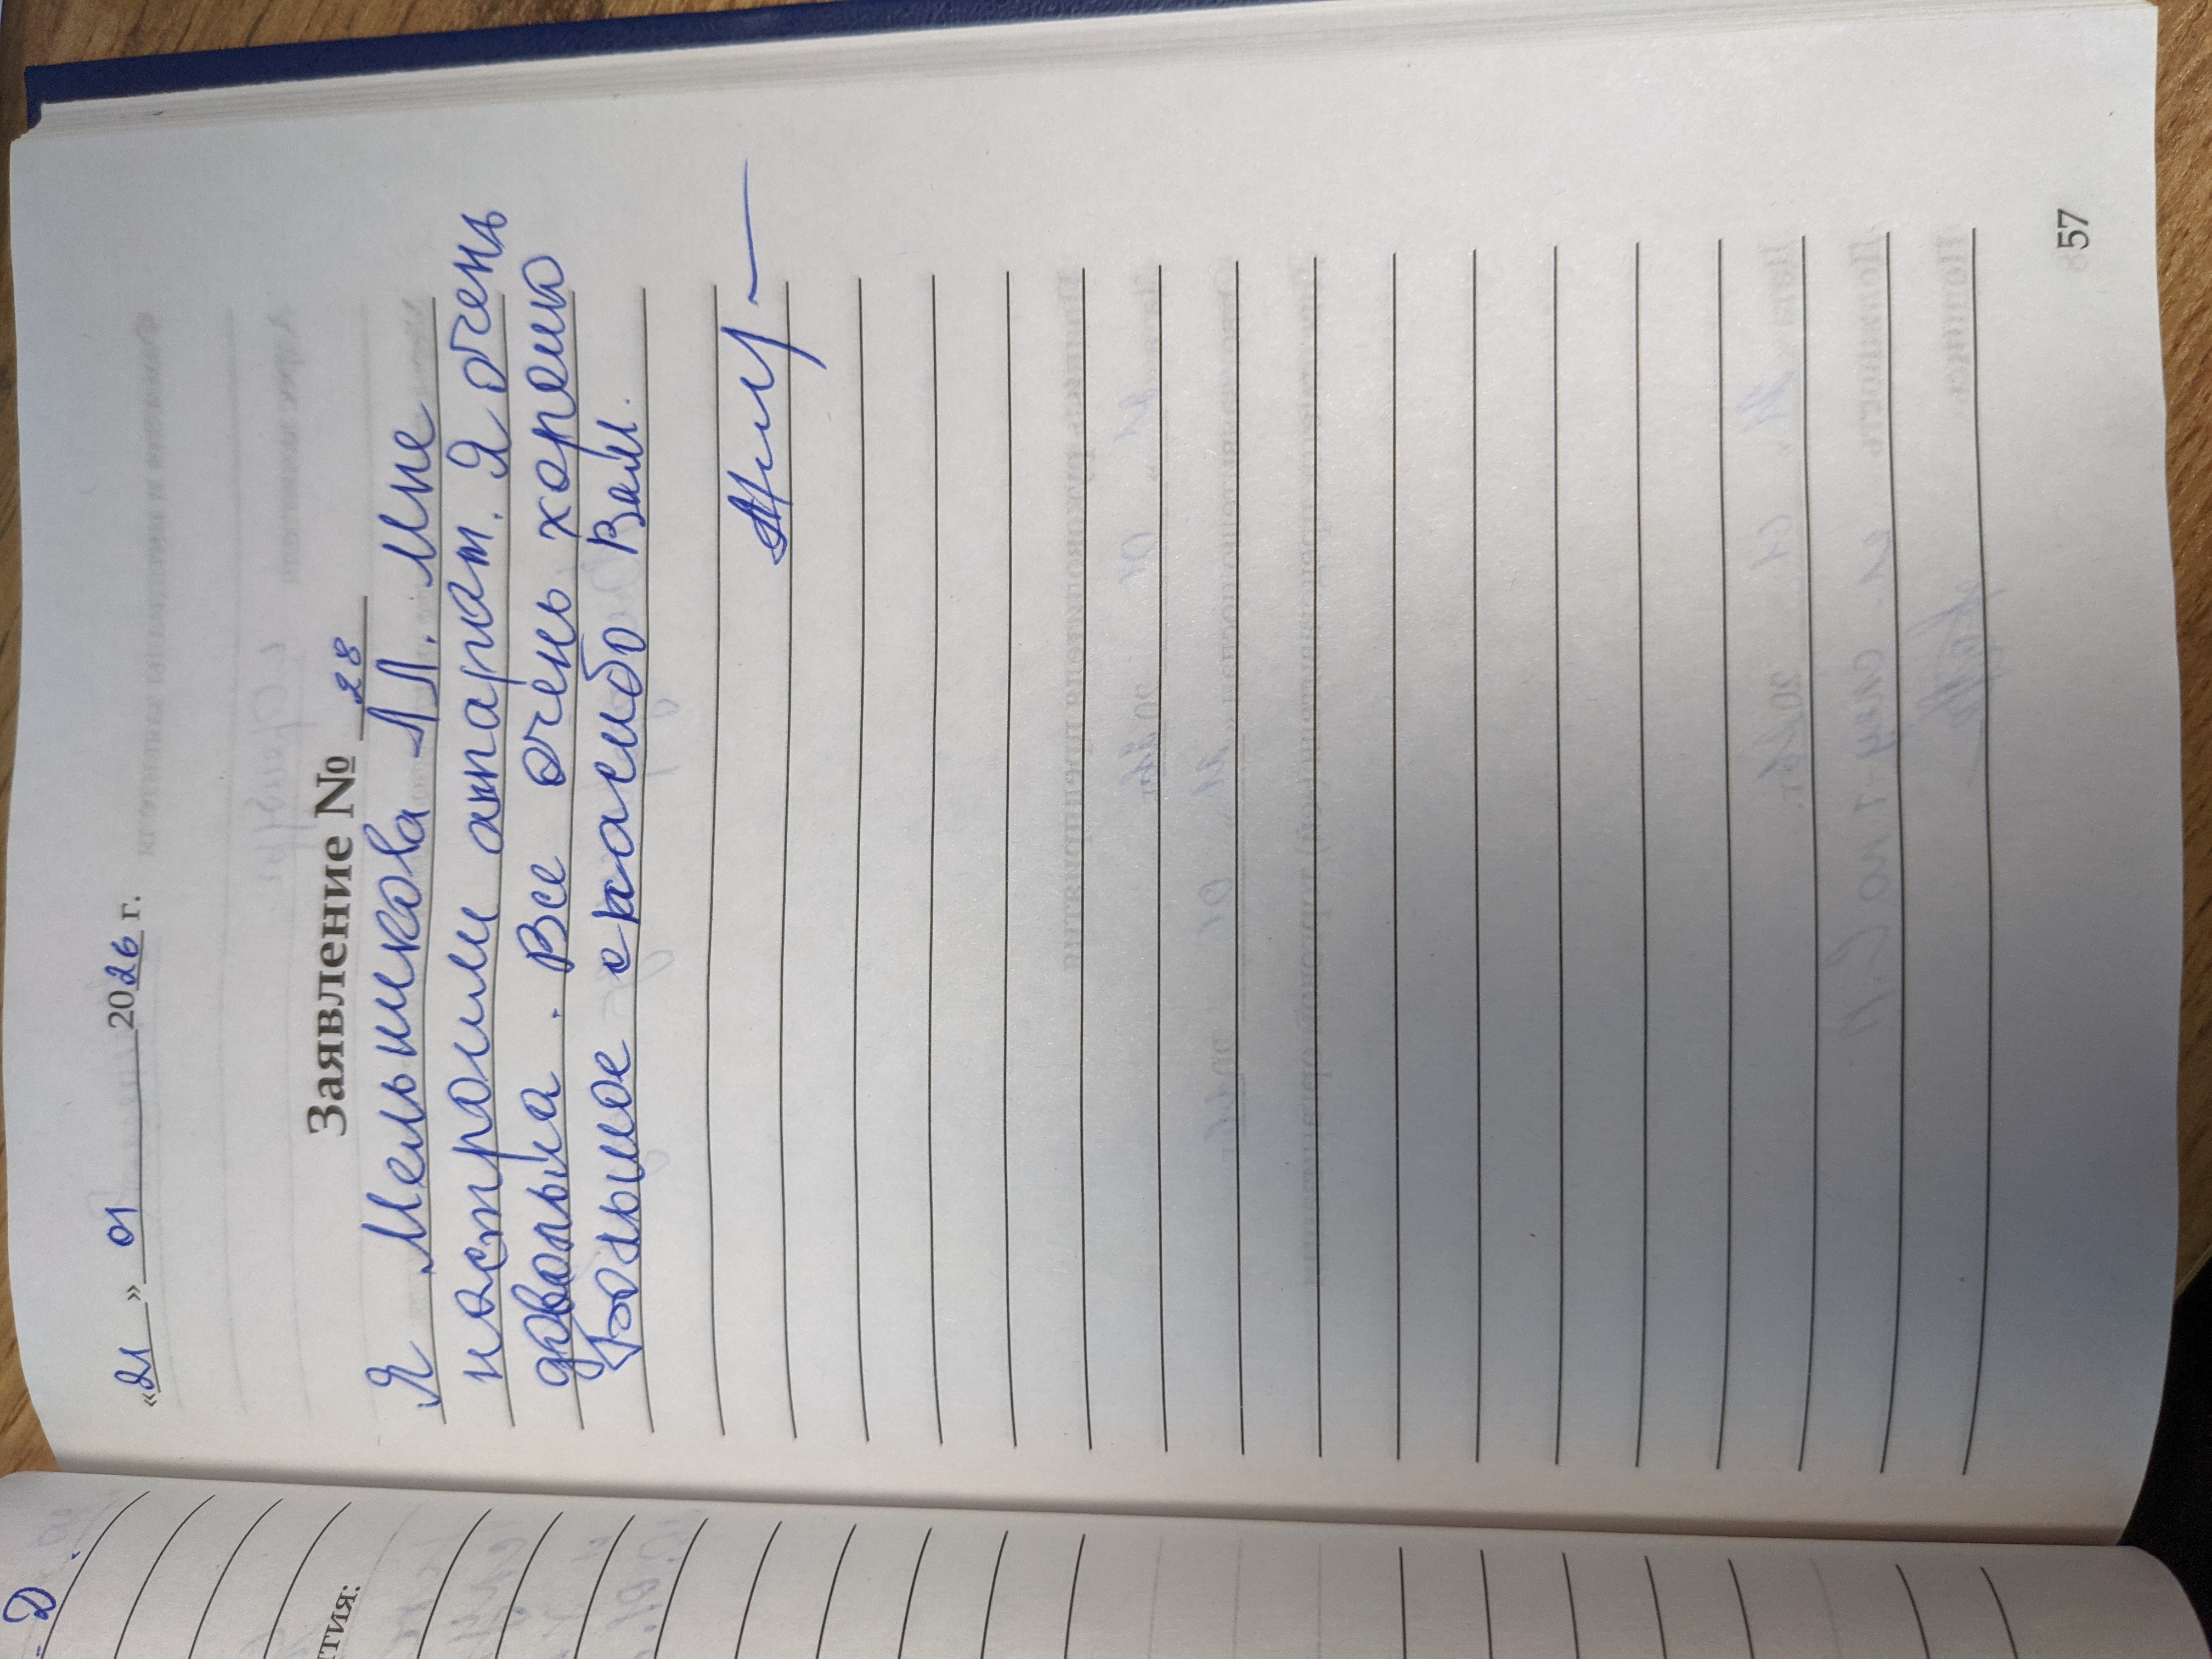 «21» 01 2026 г.
Заявление № 28
Я Мельникова Л.П. Мне
настроили аппарат. Я очень
довольна. Все очень хорошо
Большое спасибо Вам.
57